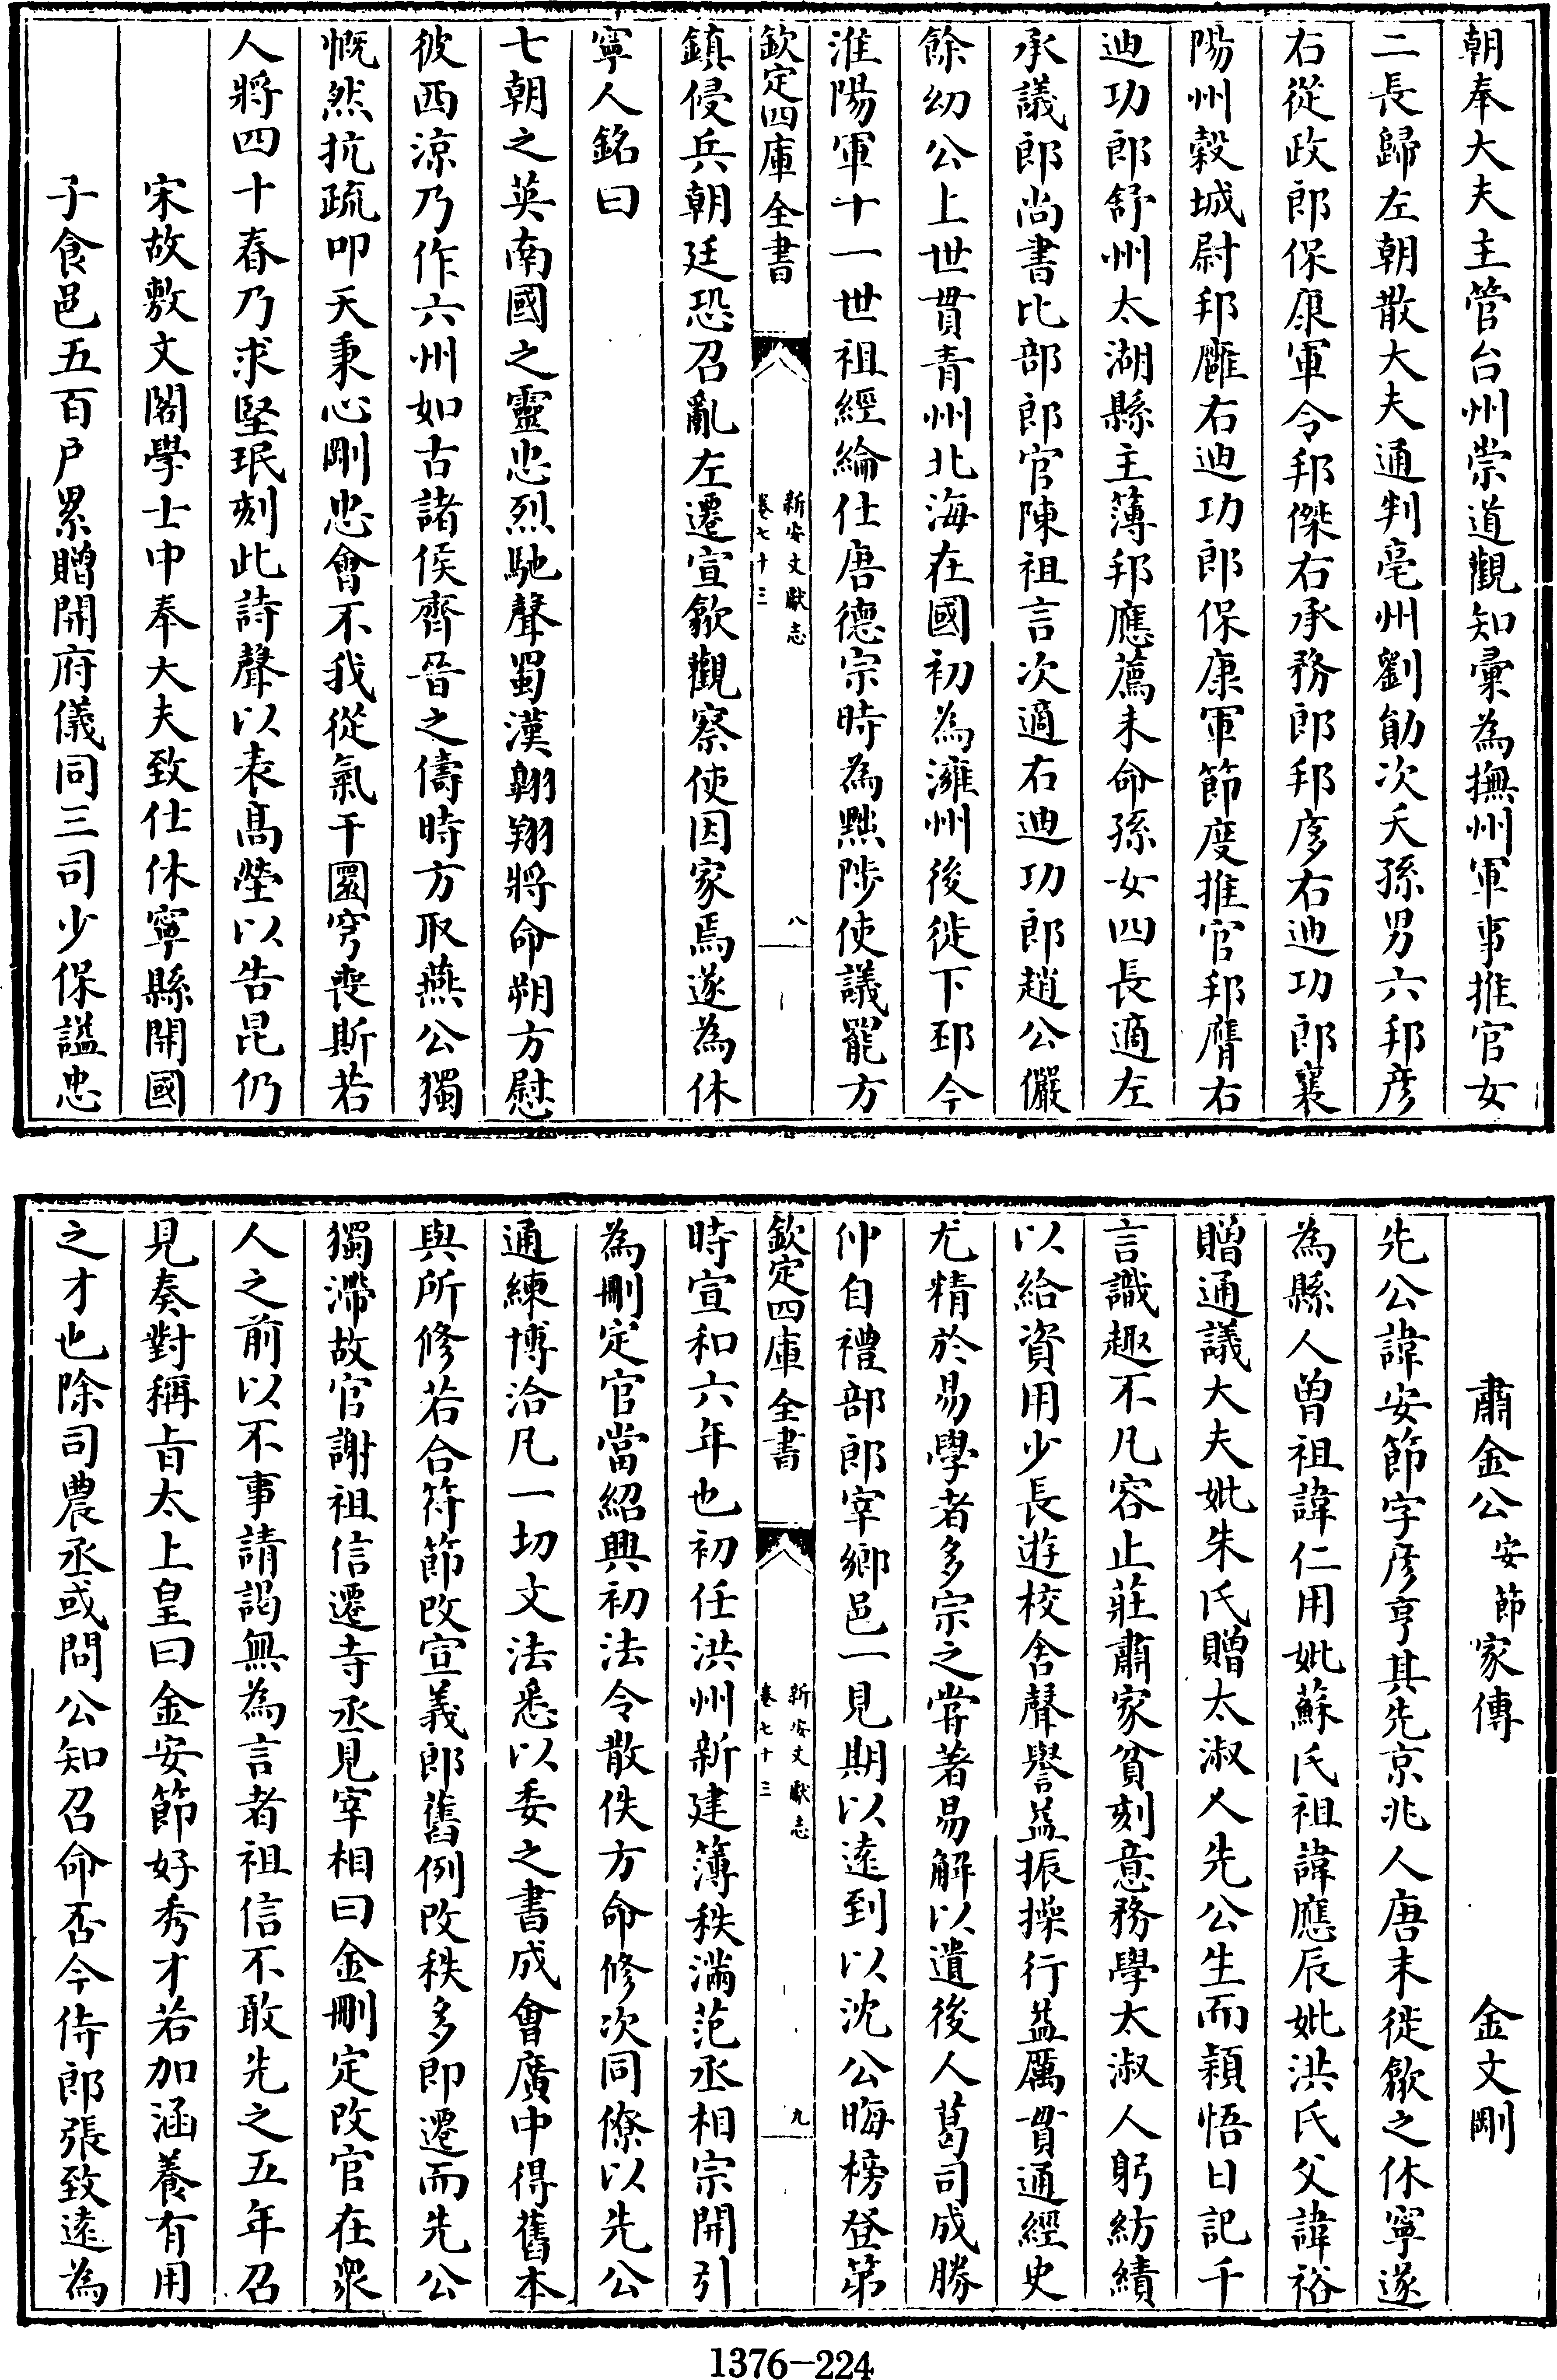 朝奉大夫主管台州崇道觀知彙為撫州軍事推官女
二長歸左朝散大夫通判亳州劉勛次夭孫男六邦彦
右從政郎保康軍令邦傑右承務郎邦彦右迪功郎襄
陽州榖城尉邦雝右迪功郎保康軍節度推官邦膺右
迪功郎舒州太湖縣主薄邦應薦未命孫女四長適左
承議郎尚書比部郎官陳祖言次適右迪功郎趙公儼
餘幼公上世貫青州北海在國初為濰州後徙下邳今
淮陽軍十一世祖經綸仕唐德宗時為黜陟使議罷方
欽定四庫全書
新安文獻志
卷七十三
八
鎮侵兵朝廷恐召亂左遷宣歙觀察使因家焉遂為休
寧人銘曰
七朝之英南國之靈忠烈馳聲蜀漢翱翔將命朔方慰
彼西涼乃作六州如古諸侯齊晉之儔時方取燕公獨
慨然抗疏叩天秉心剛忠會不我從氣干圜穹喪斯若
人將四十春乃求堅珉刻此詩聲以表髙塋以告昆仍
宋故敷文閣學士中奉大夫致仕休寧縣開國
子食邑五百户累贈開府儀同三司少保謚忠
肅金公安節家傳 金文剛
先公諱安節字彦亨其先京兆人唐末徙歙之休寧遂
為縣人曾祖諱仁用妣蘇氏祖諱應辰妣洪氏父諱裕
贈通議大夫妣朱氏贈太淑人先公生而穎悟日記千
言識趣不凡容止莊肅家貧刻意務學太淑人躬紡績
以給資用少長遊校舍聲譽益振操行益厲貫通經史
尤精於易學者多宗之嘗著易解以遺後人葛司成勝
仲自禮部郎宰鄉邑一見期以逺到以沈公晦榜登第
欽定四庫全書
新安文獻志
卷七十三
九
時宣和六年也初任洪州新建簿秩滿范丞相宗開引
為刪定官當紹興初法令散佚方命修次同僚以先公
通練博洽凡一切文法悉以委之書成會廣中得舊本
與所修若合符節改宣義郎舊例改秩多即遷而先公
獨滯故官謝祖信遷寺丞見宰相曰金刪定改官在衆
人之前以不事請謁無為言者祖信不敢先之五年召
見奏對稱㫖太上皇曰金安節好秀才若加涵養有用
之才也除司農丞或問公知召命否今侍郎張致逺為
1376-224